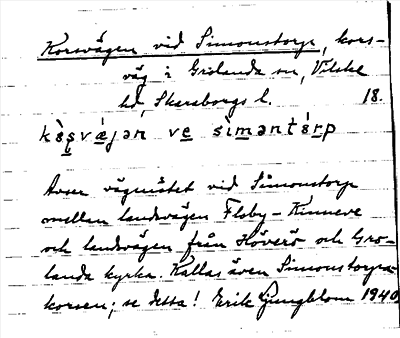 Korsvägen vid Simonstorp, kors-
väg i Grolanda sn, Vilske
hd, Skaraborgs l. 18.
kɛ̀s̱vá̱jən ve̱ sìm̱əntɛ́ṟp
Avser vägmötet vid Simonstorp
mellan landsvägen Floby - Kinneve
och landsvägen från Höverö och Gro-
landa kyrka. Kallas även Simonstorpa-
korsen; se detta! Erik Ljungblom 1940